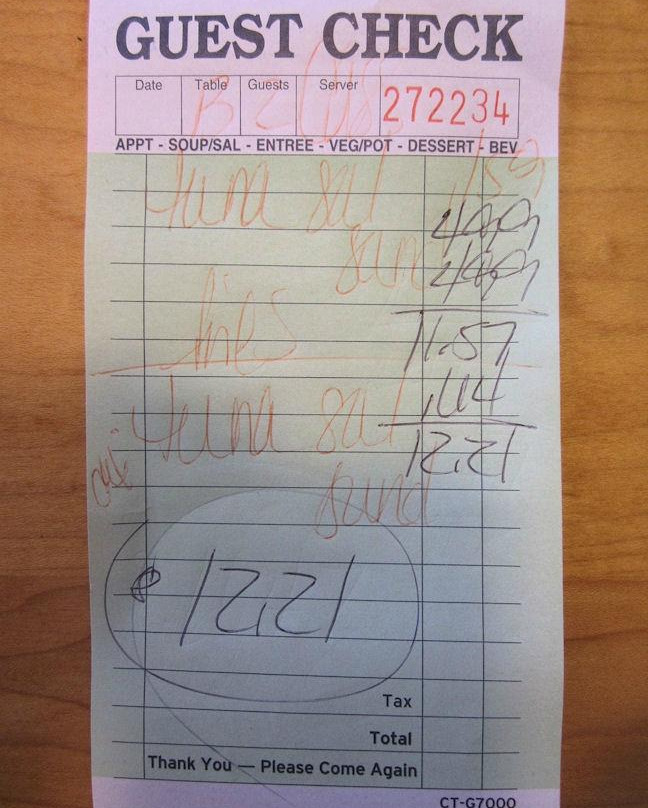 GUEST CHECK
Date Table Guests Server
B 2
272234
APPT - SOUP/SAL - ENTREE - VEG/POT - DESSERT - BEV
tuna sal 1.59
san 4.99
4.99
fries 11.57
.64
tuna sal 12.21
sand
12.21
Tax
Total
Thank You — Please Come Again
CT-G7000